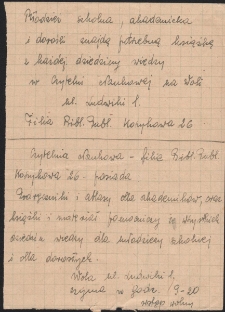 Młodzież szkolna, akademicka
i dorośli znajdą potrzebną książkę
z każdej dziedziny wiedzy
w Czytelni naukowej na Woli
ul. Ludwiki 1.
Filia Bibl. Publ. Koszykowa 26
Czytelnia naukowa – filia Bibl. Publ.
Koszykowa 26 – posiada
Podręczniki i atlasy dla akademików, oraz
książki i pomocnicze ze wszystkich
wiedzy dla młodzieży szkolnej
i dla dorosłych.
Wola ul. Ludwiki 1.
czynna w godz. 9–20
wstęp wolny